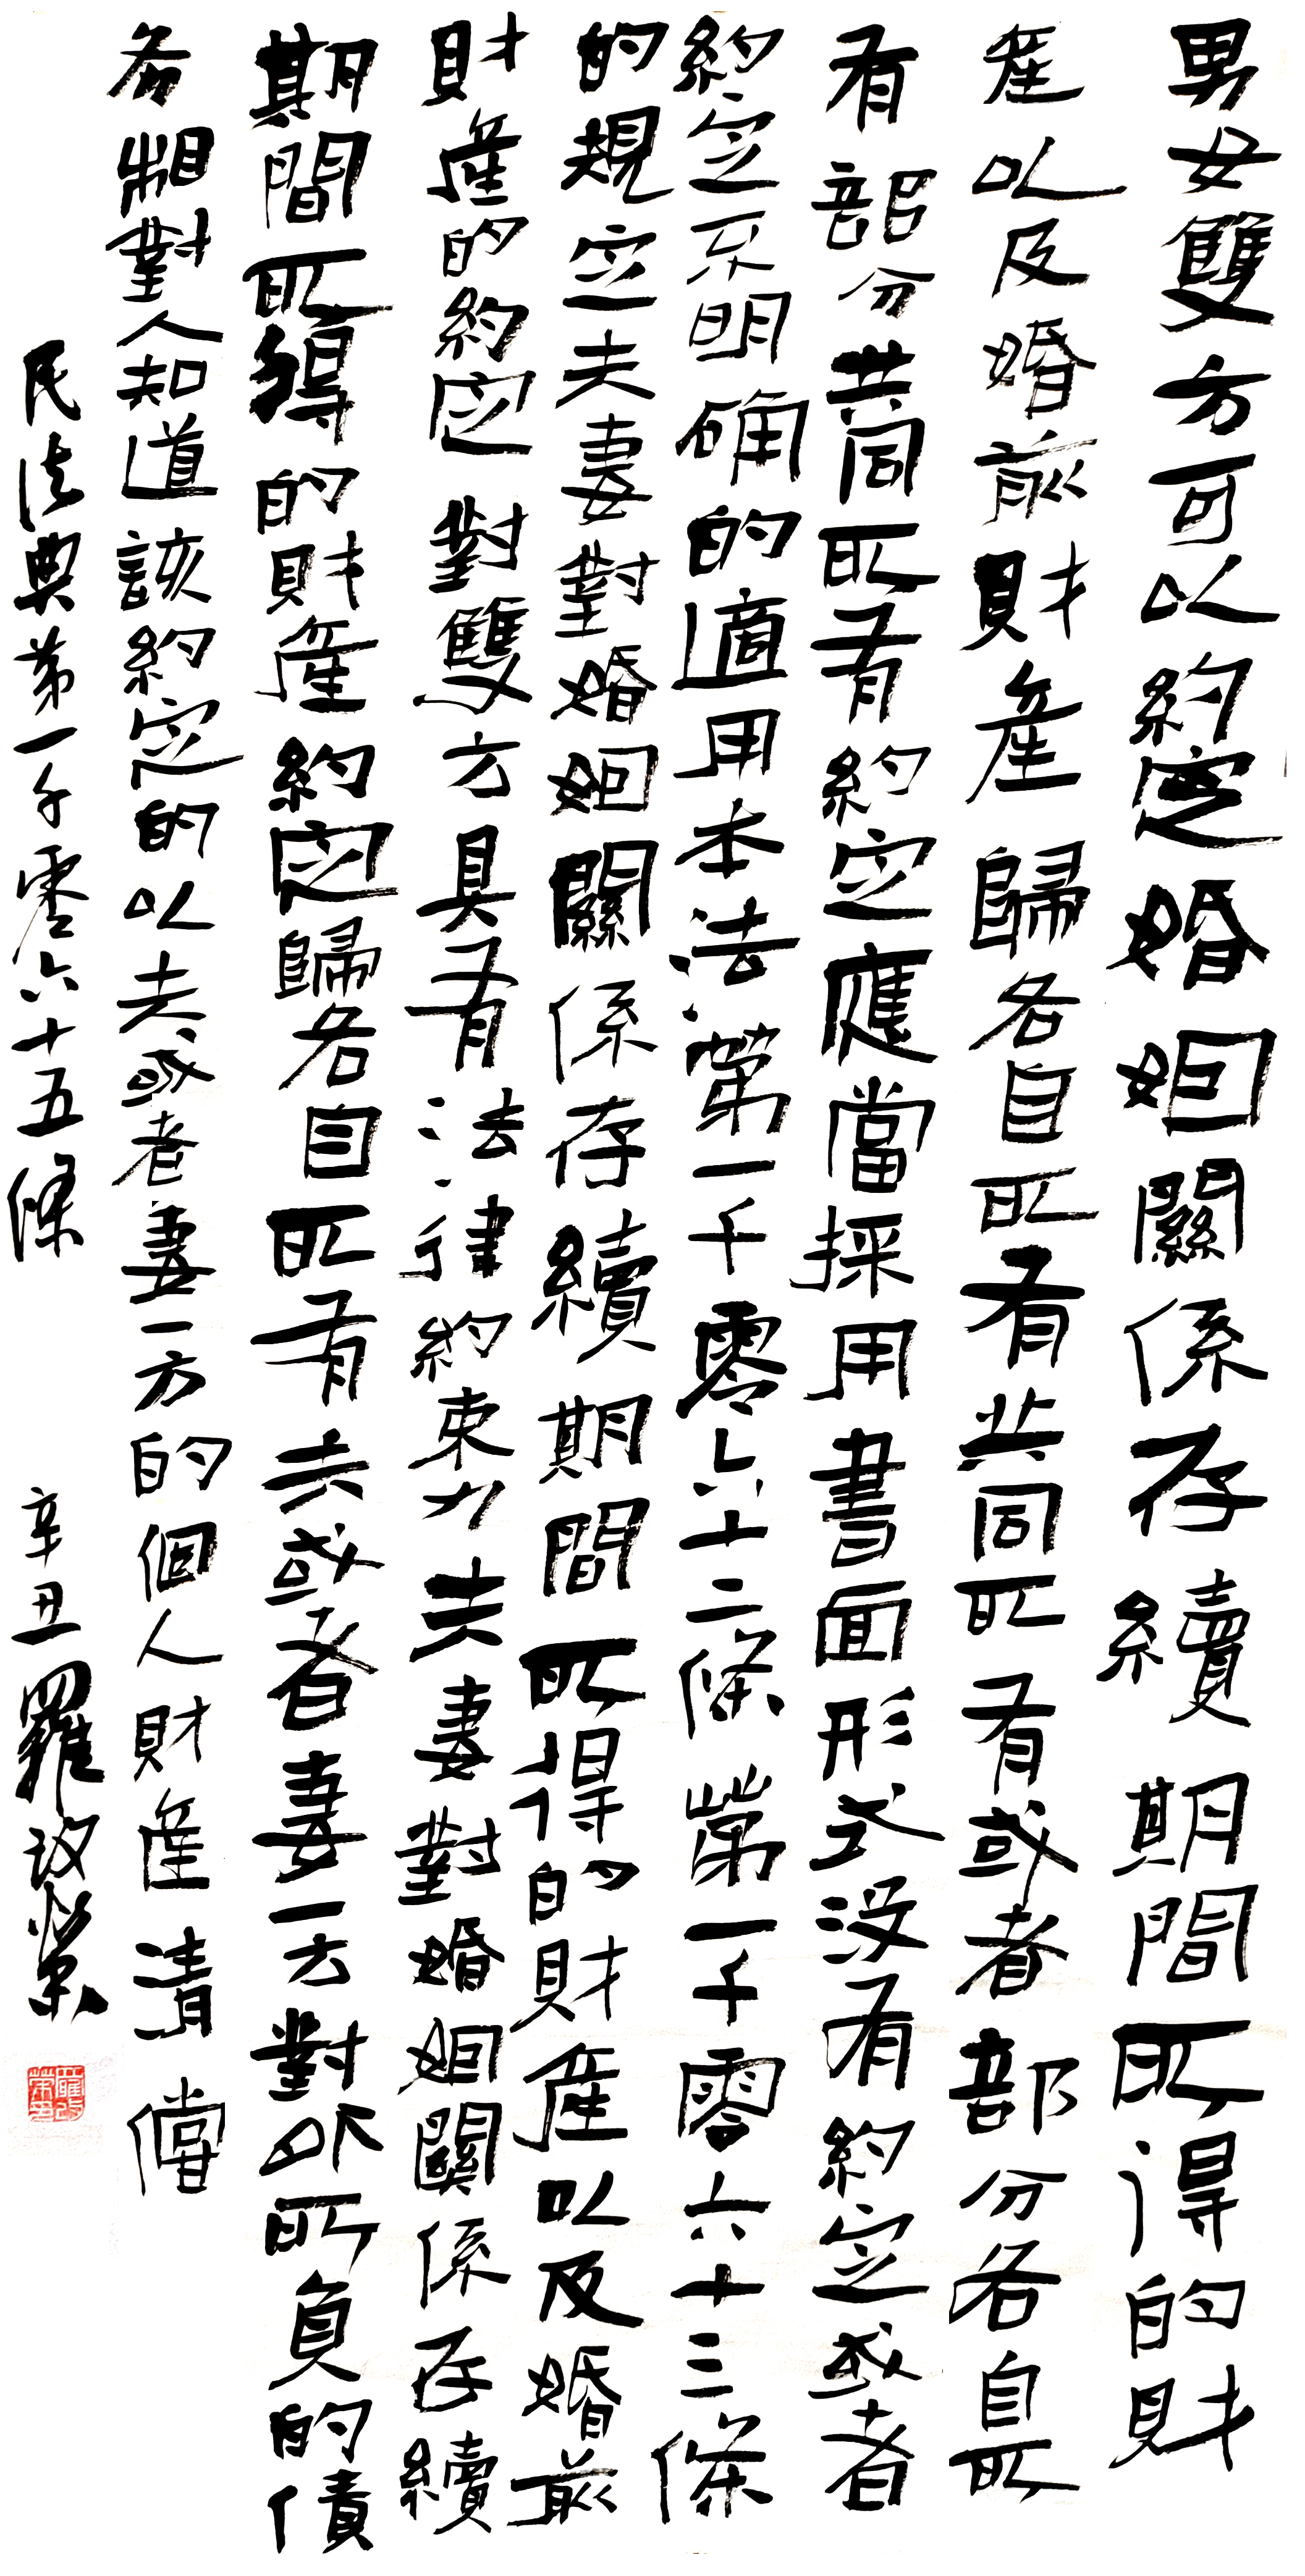 男女雙方可以約定婚姻關係存續期間所得的財
産以及婚前財産歸各自所有共同所有或者部分各自所
有部分共同所有約定應當採用書面形式没有約定或者
約定不明确的適用本法第一千零六十二條第一千零六十三條
的規定夫妻對婚姻關係存續期間所得的財産以及婚前
財産的約定對雙方具有法律約束力夫妻對婚姻關係存續
期間所得的財産約定歸各自所有夫或者妻一方對外所負的債
務相對人知道該約定的以夫或者妻一方的個人財産清償
民法典第一千零六十五條
辛丑羅攻榮